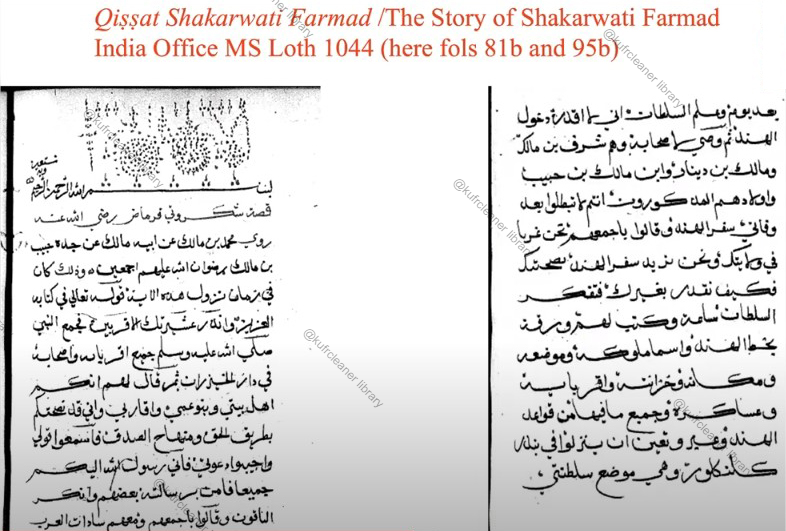 Qiṣṣat Shakarwati Farmad /The Story of Shakarwati Farmad
India Office MS Loth 1044 (here fols 81b and 95b)
بسم الله الرحمن الرحيم
قصة شكروتي فرماض رضي الله عنه
روى محمد بن مالك عن ابيه مالك عن جده حبيب
بن مالك رضوان الله عليهم اجمعين وذلك كان
في زمان نزول هذه الاية قوله تعالى في كتابه
العزيز وانذر عشيرتك الاقربين فجمع النبي
صلى الله عليه وسلم جميع اقربائه واصحابه
في دار ثم قال لهم انكم
اهل بيتي وبنو عمي واقاربي واني قد نصحتكم
بطريق الحق ومنهاج الصدق فاسمعوا قولي
واجيبوا دعوتي فاني رسول الله اليكم
جميعا فامن برسالته بعضهم وانكر
الباقون وقالوا باجمعهم ومعهم سادات العرب
بعد يوم وعلم السلطان اني ما اقدر دخول
الهند ثم وصى اصحابه وهم شرف بن مالك
ومالك بن دينار وابن مالك بن حبيب
واولادهم المذكورون انتم لا تبطلوا بعد
وفاتي سفر الهند وقالوا باجمعهم نحن غربا
في ولايتك ونحن نريد سفر الهند بصحبتك
فكيف نقدر بغيرك فتفكر
السلطان ساعة وكتب لهم ورقة
بخط الهند واسما ملوكه وموضعه
ومكانه وخزانته واقربايه
وعساكره وجميع ما فيها من قواعد
الهند وغير وتعين ان ينزلوا في بندر
كلنكلور وهي موضع سلطنتي
@kufrcleaner library
@kufrcleaner library
@kufrcleaner library
@kufrcleaner library
@kufrcleaner library